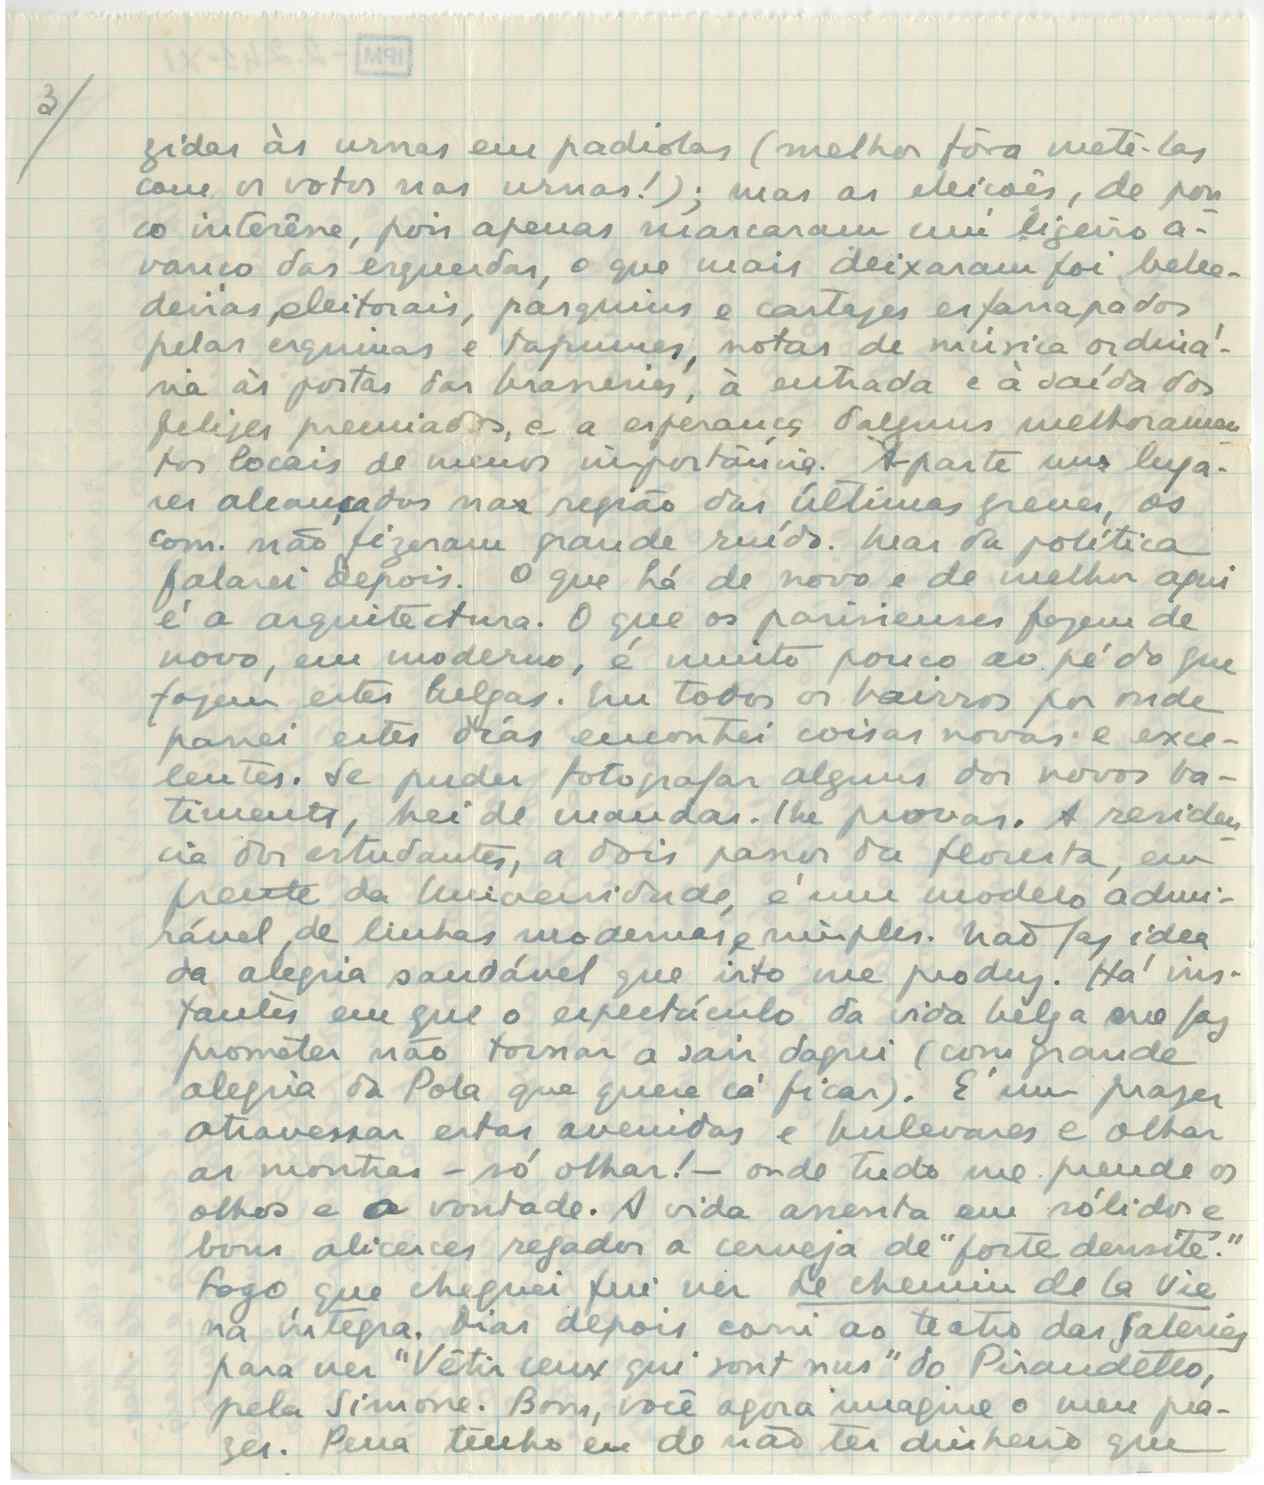 3/
gidas às urnas em padiolas (melhor fôra metê-las
com os votos nas urnas!); mas as eleições, de pou
co interêsse, pois apenas marcaram um ligeiro a-
vanço das esquerdas, o que mais deixaram foi bebe-
deiras eleitorais, pasquins e cartazes esfarrapados
pelas esquinas e tapumes, notas de música ordiná-
ria às portas das brasseries, à entrada e à saída dos
felizes premiados, e a esperança dalguns melhoramen
tos locais de menos importância. Àparte uns luga-
res alcançados nas região das últimas greves, os
com. não fizeram grande ruído. Mas da política
falarei depois. O que há de novo e de melhor aqui
é a arquitectura. O que os parisienses fazem de
novo, em moderno, é muito pouco ao pé do que
fazem estes belgas. Em todos os bairros por onde
passei estes dias encontrei coisas novas e exce-
lentes. Se puder fotografar alguns dos novos ba-
timents, hei de mandar-lhe provas. A residen
cia dos estudantes, a dois passos da floresta, em
frente da Universidade, é um modelo admi-
rável, de linhas modernas e simples. Não faz idea
da alegria saudável que isto me produz. Há ins-
tantes em que o espectáculo da vida belga me faz
prometer não tornar a sair daqui (com grande
alegria da Pola que quere cá ficar). É um prazer
atravessar estas avenidas e bulevares e olhar
as montras - só olhar! - onde tudo me prende os
olhos e a vontade. A vida assenta em sólidos e
bons alicerces regados a cerveja de "forte densité."
Logo que cheguei fui ver Le chemin de la Vie
na íntegra. Dias depois corri ao teatro das Galeries
para ver "Vêtir ceux qui sont nus" do Pirandello,
pela Simone. Bom, você agora imagine o meu pra-
zer. Pena tenho eu de não ter dinheiro que